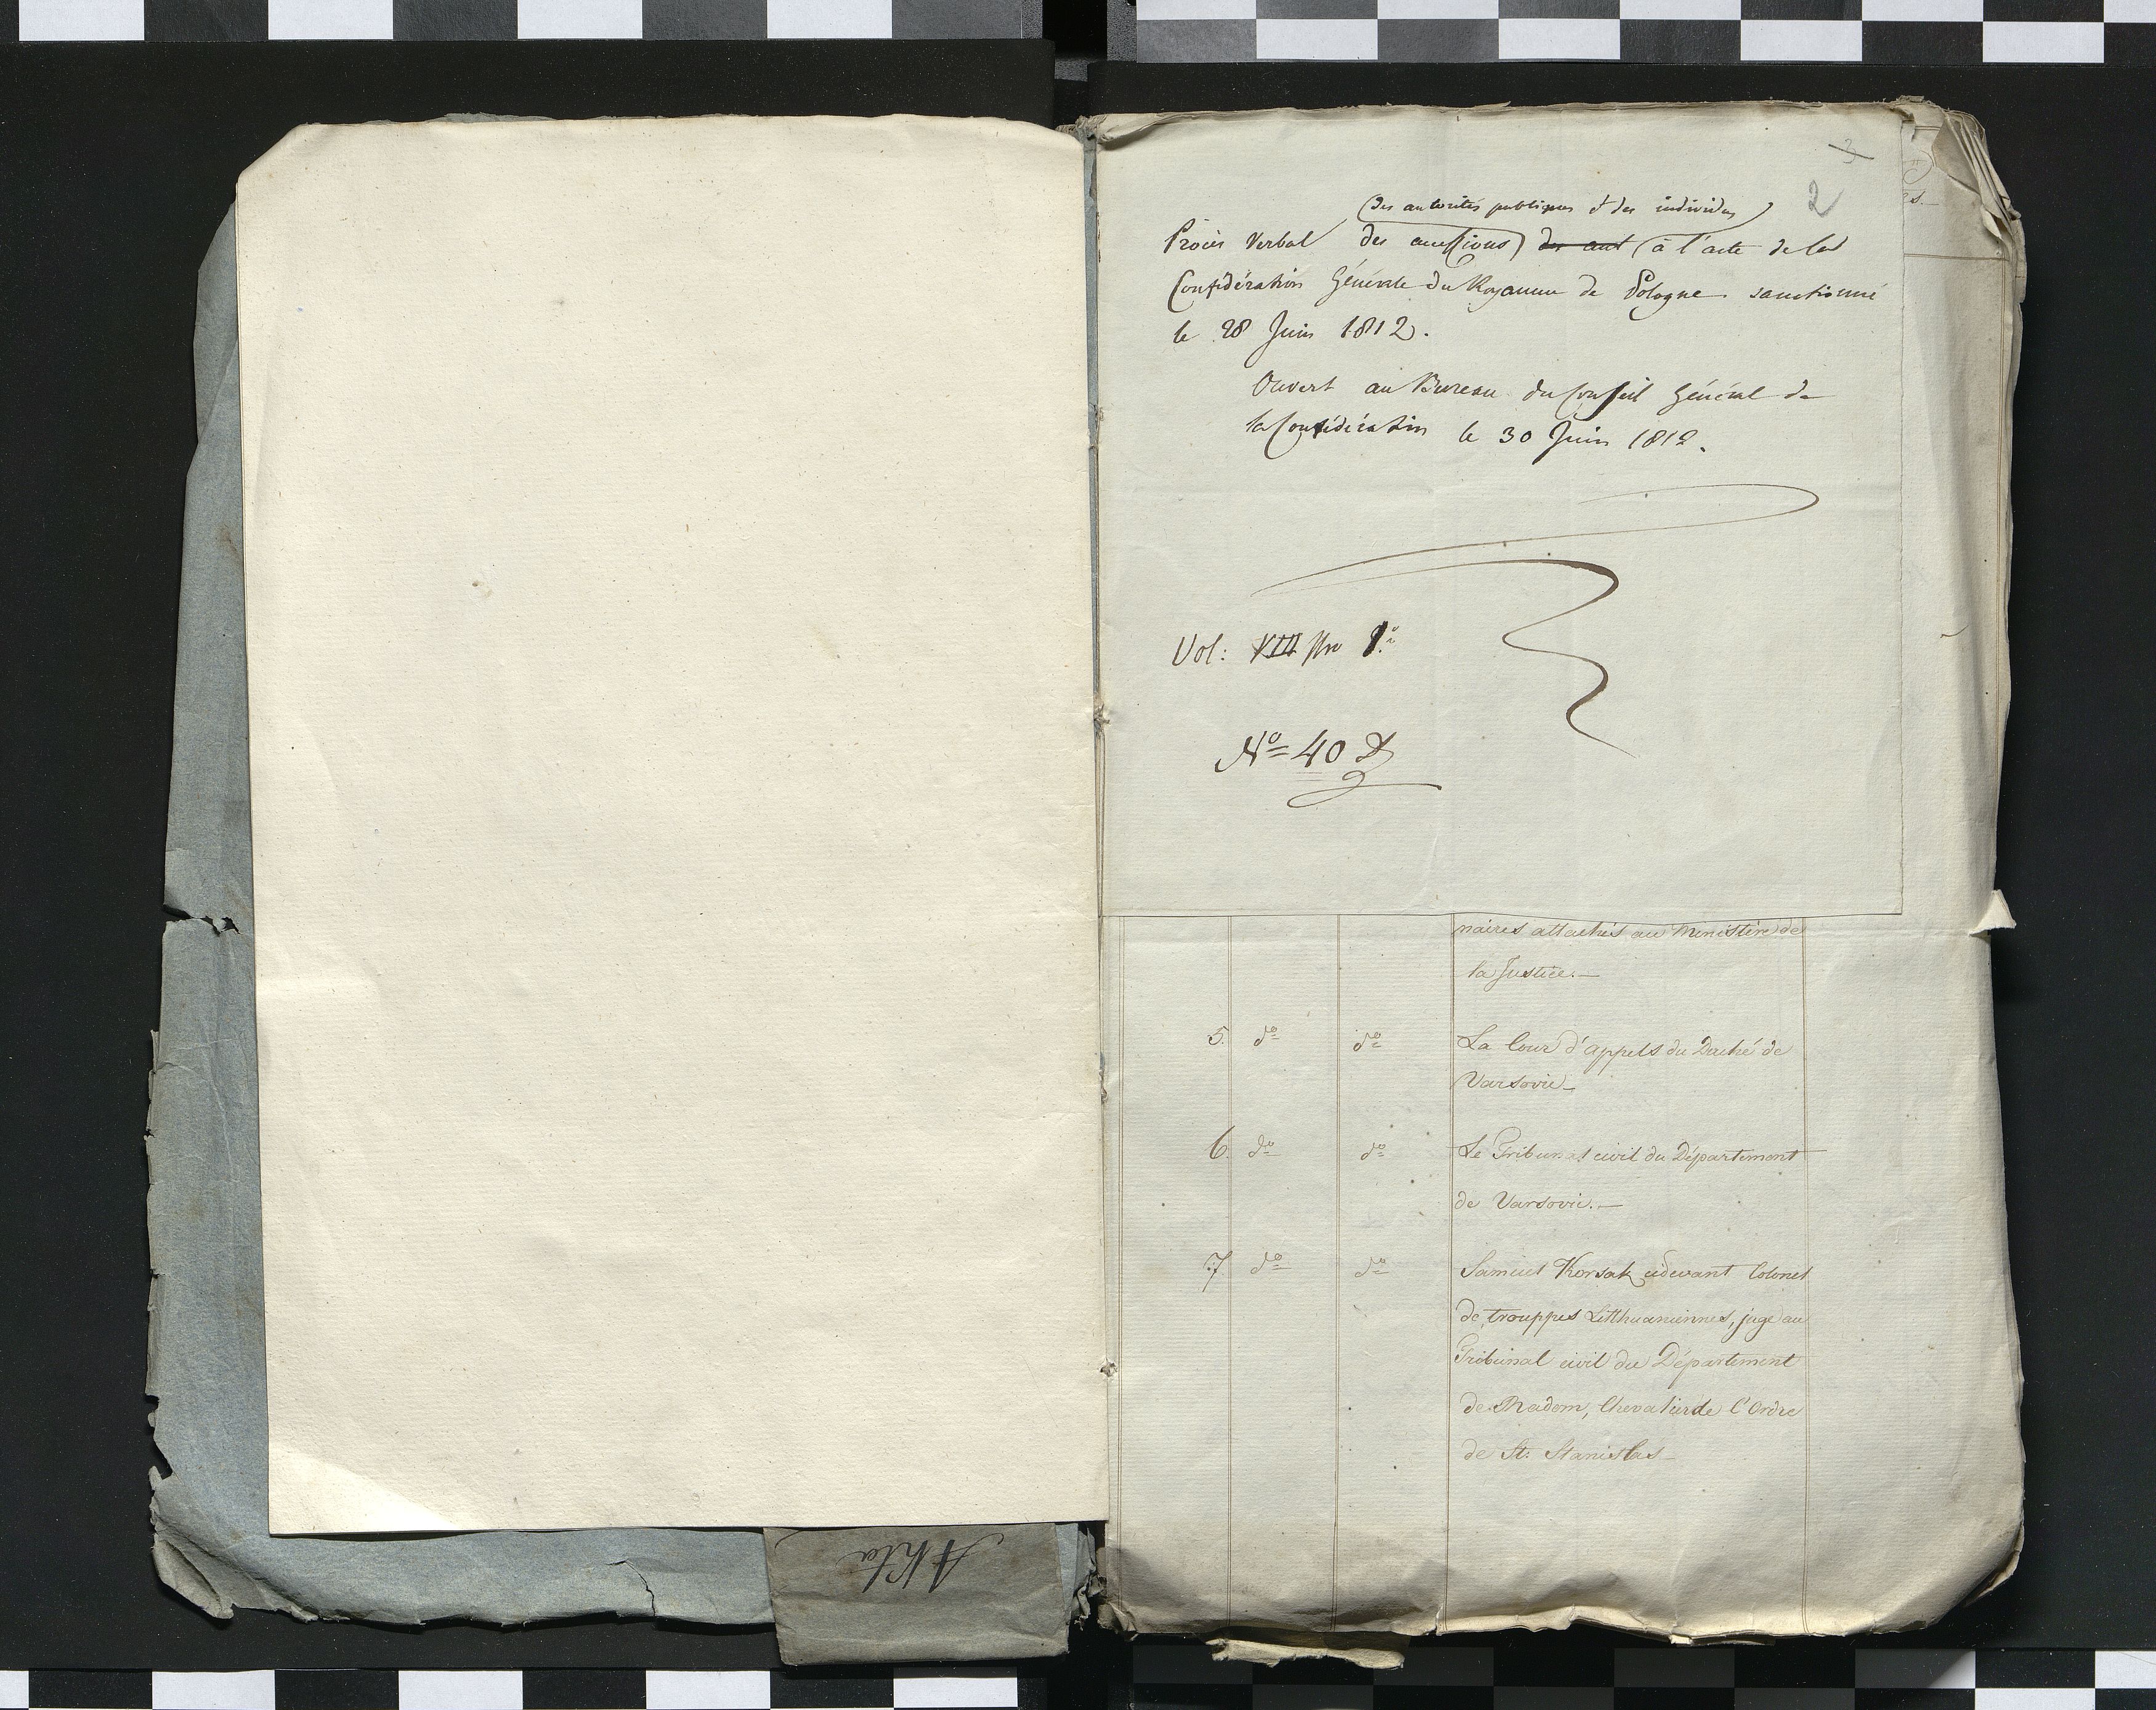 3
2
des autorités publiques & des individus
Procès Verbal des accessions des aut à l'acte de la
Confédération Générale du Royaume de Pologne sanctionné
le 28 Juin 1812.
Ouvert au Bureau du Conseil Général de
la Confédération le 30 Juin 1812.
Vol: VIII 1º
Nº 40
naires attachés au Ministère de
la Justice.—
5. dº dº La Cour d'appels du Duché de
Varsovie—
6. dº dº Le Tribunal civil du Département
de Varsovie.—
7. dº dº Samuel Korsak cidevant Colonel
de trouppes Litthuaniennes, juge au
Tribunal civil du Département
de Radom, Chevalier de l'Ordre
de St: Stanislas—
Akta